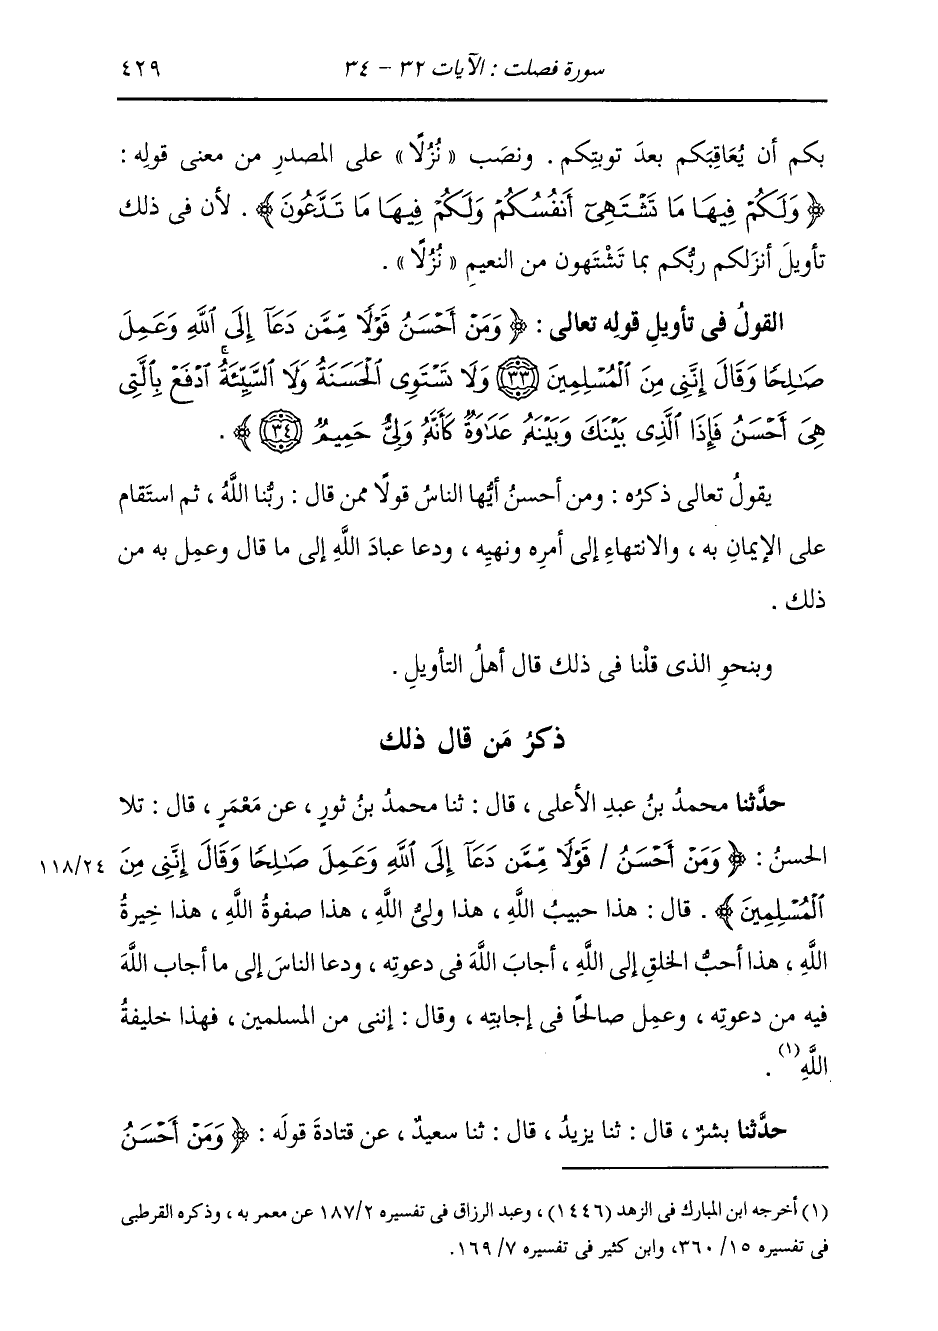 سورة فصلت : الآيات ٣٢ - ٣٤ ٤٢٩
بكم أن يُعَاقِبَكم بعدَ توبتِكم . ونصَب « نُزُلًا » على المصدرِ من معنى قولِه :
﴿ وَلَكُمْ فِيهَا مَا تَشْتَهِىٓ أَنفُسُكُمْ وَلَكُمْ فِيهَا مَا تَدَّعُونَ ﴾ . لأن فى ذلك
تأويلَ أنزَلكم ربُّكم بما تَشْتَهون من النعيمِ « نُزُلًا » .
القولُ فى تأويلِ قولِه تعالى : ﴿ وَمَنْ أَحْسَنُ قَوْلًا مِّمَّن دَعَآ إِلَى ٱللَّهِ وَعَمِلَ
صَٰلِحًا وَقَالَ إِنَّنِى مِنَ ٱلْمُسْلِمِينَ ٣٣ وَلَا تَسْتَوِى ٱلْحَسَنَةُ وَلَا ٱلسَّيِّئَةُ ۚ ٱدْفَعْ بِٱلَّتِى
هِىَ أَحْسَنُ فَإِذَا ٱلَّذِى بَيْنَكَ وَبَيْنَهُۥ عَدَٰوَةٌ كَأَنَّهُۥ وَلِىٌّ حَمِيمٌ ٣٤ ﴾ .
يقولُ تعالى ذكرُه : ومن أحسنُ أيُّها الناسُ قولًا ممن قال : ربُّنا اللَّهُ ، ثم استَقام
على الإيمانِ به ، والانتهاءِ إلى أمرِه ونهيِه ، ودعا عبادَ اللَّهِ إلى ما قال وعمِل به من
ذلك .
وبنحوِ الذى قلْنا فى ذلك قال أهلُ التأويلِ .
ذكرُ مَن قال ذلك
حدَّثنا محمدُ بنُ عبدِ الأعلى ، قال : ثنا محمدُ بنُ ثورٍ ، عن مَعْمَرٍ ، قال : تلا
الحسنُ : ﴿ وَمَنْ أَحْسَنُ / قَوْلًا مِّمَّن دَعَآ إِلَى ٱللَّهِ وَعَمِلَ صَٰلِحًا وَقَالَ إِنَّنِى مِنَ ١١٨/٢٤
ٱلْمُسْلِمِينَ ﴾ . قال : هذا حبيبُ اللَّهِ ، هذا ولىُّ اللَّهِ ، هذا صفوةُ اللَّهِ ، هذا خِيرةُ
اللَّهِ ، هذا أحبُّ الخلقِ إلى اللَّهِ ، أجابَ اللَّهَ فى دعوتِه ، ودعا الناسَ إلى ما أجاب اللَّهَ
فيه من دعوتِه ، وعمِل صالحًا فى إجابتِه ، وقال : إننى من المسلمين ، فهذا خليفةُ
اللَّهِ (١) .
حدَّثنا بشرٌ ، قال : ثنا يزيدُ ، قال : ثنا سعيدٌ ، عن قتادةَ قولَه : ﴿ وَمَنْ أَحْسَنُ
(١) أخرجه ابن المبارك فى الزهد (١٤٤٦) ، وعبد الرزاق فى تفسيره ١٨٧/٢ عن معمر به ، وذكره القرطبى
فى تفسيره ١٥/ ٣٦٠، وابن كثير فى تفسيره ٧/ ١٦٩.